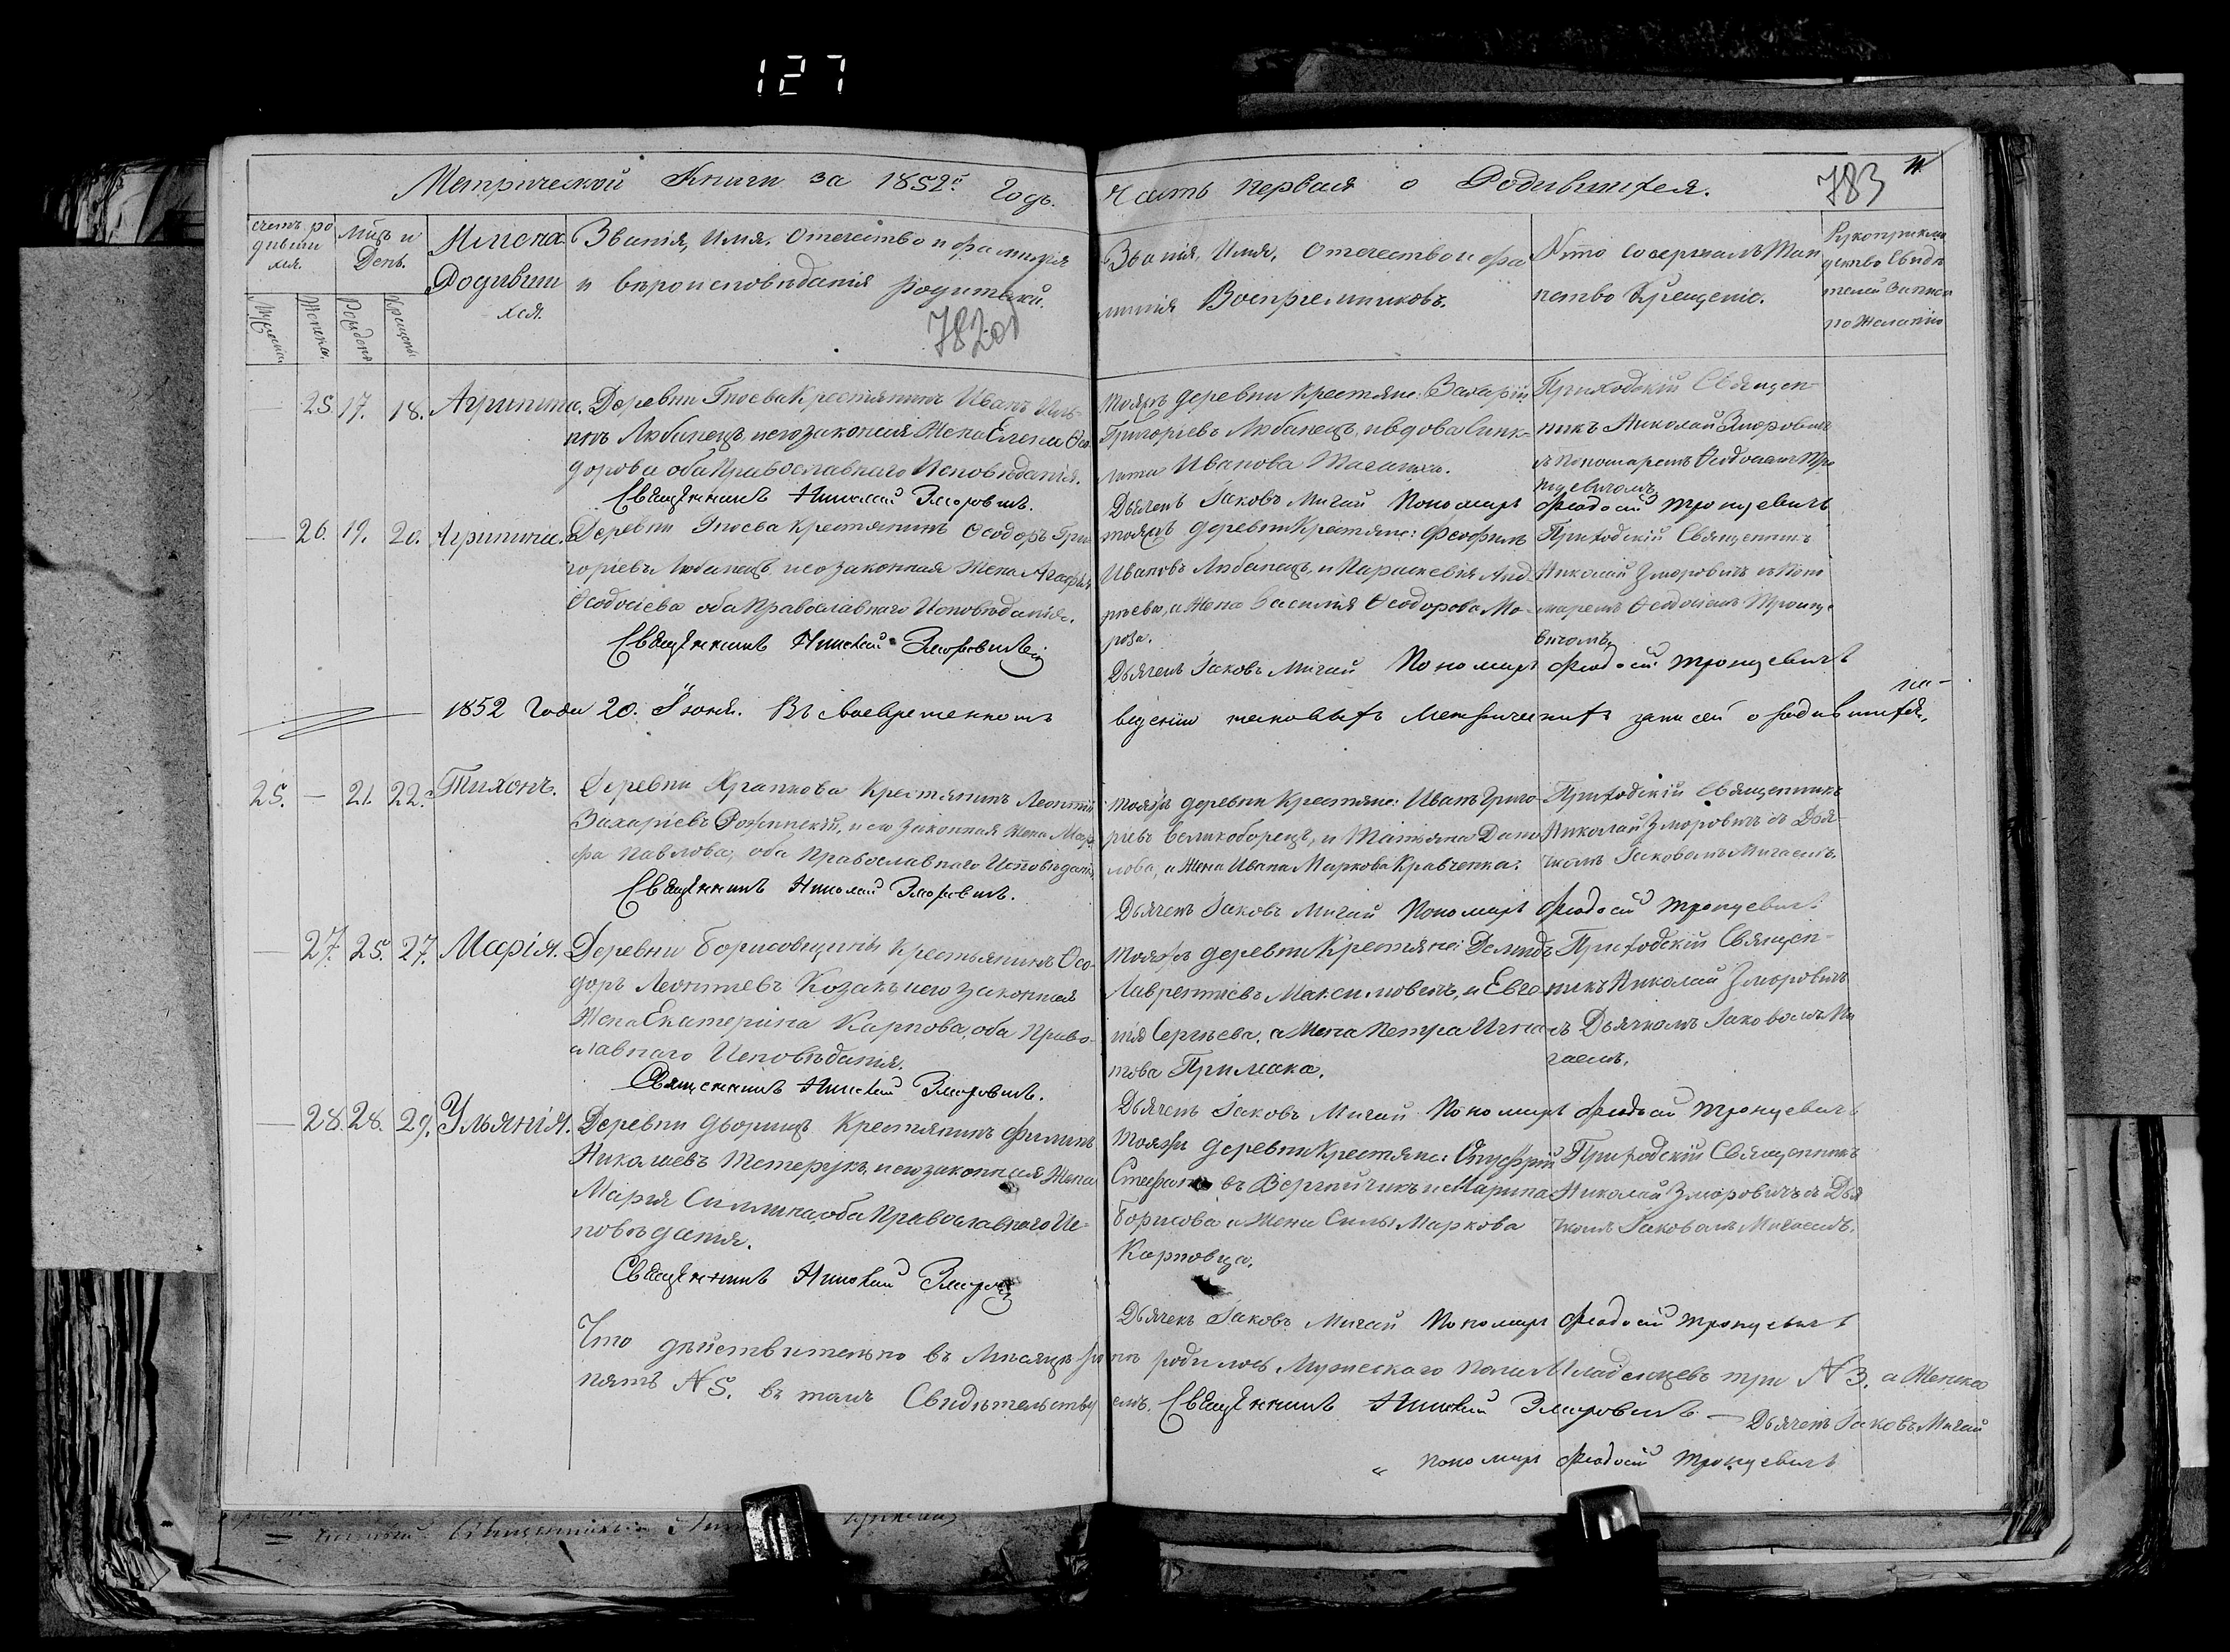 127
Метрической Книги за 1852й Годъ.
Часть первая о Родившихся.
783
счетъ родившихся.
Мѣсь и День.
Имена Родившихся.
Званія, Имя, Отечество и фамилія
и вѣроисповѣданія родителей.
782об
Званія, Имя, Отечество и фамилія Воспріемниковъ.
Кто совершалъ Таинство Крещенія.
Рукоприкладство Свидѣтелей записи по Желанію
Мужеска.
Женска.
Рожденія
Крещенія
— 25. 17. 18. Агрипина. Деревни Гноева Крестянинъ Иванъ Иль-
инъ Любанецъ, и его законная Жена Елена Ѳео-
дорова оба Православнаго Исповѣданія.
Священникъ Николай Зморовичъ.
тояжъ деревни Крестяне: Захарій
Григоріевъ Любанецъ, и вдова
Иванова
Дьячекъ Іаковъ Мигай Пономарь Феодосій Тронцевичъ
Приходскій Священ-
никъ Николай Зморовичъ
съ Пономаремъ Ѳеодосіемъ Тро
нцевичомъ
— 26. 19. 20. Агрипина. Деревни Гноева крестянинъ Ѳеодоръ Гри-
горіевъ Любанецъ, и его законная Жена Агафія
Ѳеодосіева оба Православнаго Исповѣданія.
Священникъ Николай Зморовичъ
тояжъ деревни Крестяне: Феофилъ
Ивановъ Любанецъ, и Параскевія Анд-
реева, а Жена Василія Ѳеодорова Мо-
роза.
Дьячекъ Іаковъ Мигай Пономарь Феодосій Тронцевичъ
Приходскій Священникъ
Николай Зморовичъ съ Поно
маремъ Ѳеодосіемъ Тронце
вичомъ
1852 Года 20. Іюня. Въ своевременномъ
веденіи таковыхъ Метрическихъ записей о родившихся,
25. — 21. 22. Тихонъ. Деревни Храпкова Крестянинъ Леонтій
Захаріевъ Рожинскій, и его Законная Жена Мар-
фа Павлова, оба Православнаго Исповѣданія
Священникъ Николай Зморовичъ.
тояжъ деревни Крестяне: Иванъ Григо-
ріевъ Великоборецъ, и Татьяна Дани
лова, а Жена Ивана Маркова Кравченка.
Дьячекъ Іаковъ Мигай Пономарь Феодосій Тронцевичъ
Приходскій Священникъ
Николай Зморовичъ съ Дья-
чкомъ Іаковомъ Мигаемъ.
— 27. 25. 27. Марія. Деревни Борисовщины Крестьянинъ Ѳео-
доръ Леонтіевъ Козакъ и его законная
Жена Екатерина Карпова, оба Право-
славнаго Исповѣданія.
Священникъ Николай Зморовичъ.
тояжъ деревни Крестяне: Демидъ
Лаврентіевъ Максимовичъ, и Евге
нія Сергѣева, а Жена Петра Игна
това Примака.
Дьячекъ Іаковъ Мигай Пономарь Феодосій Тронцевичъ
Приходскій Священ-
никъ Николай Зморовичъ
съ Дьячкомъ Іаковомъ Ми
гаемъ.
— 28. 28. 29. Ульянія. Деревни Дворищъ Крестянинъ Филипъ
Николаевъ Тетерукъ, и его законная Жена
Марія Силина, оба Православнаго Ис-
повѣданія.
Священникъ Николай Зморович
тояжъ деревни Крестяне: Онуфрій
Стефановъ Вергейчикъ и Марина
Борисова а Жена Силы Маркова
Карповца.
Дьячекъ Іаковъ Мигай Пономарь Феодосій Тронцевичъ
Приходскій Священникъ
Николай Зморовичъ съ Дья
чкомъ Іаковомъ Мигаемъ.
Что дѣйствительно въ Мѣсяцѣ Іюнѣ родилось Мужескаго пола Младенцевъ три N 3. а Женска
пять N 5. въ томъ Свидѣтельствуемъ. Священникъ Николай Зморовичъ — Дьячекъ Іаковъ Мигай
„ пономарь Феодосій Тронцевичъ